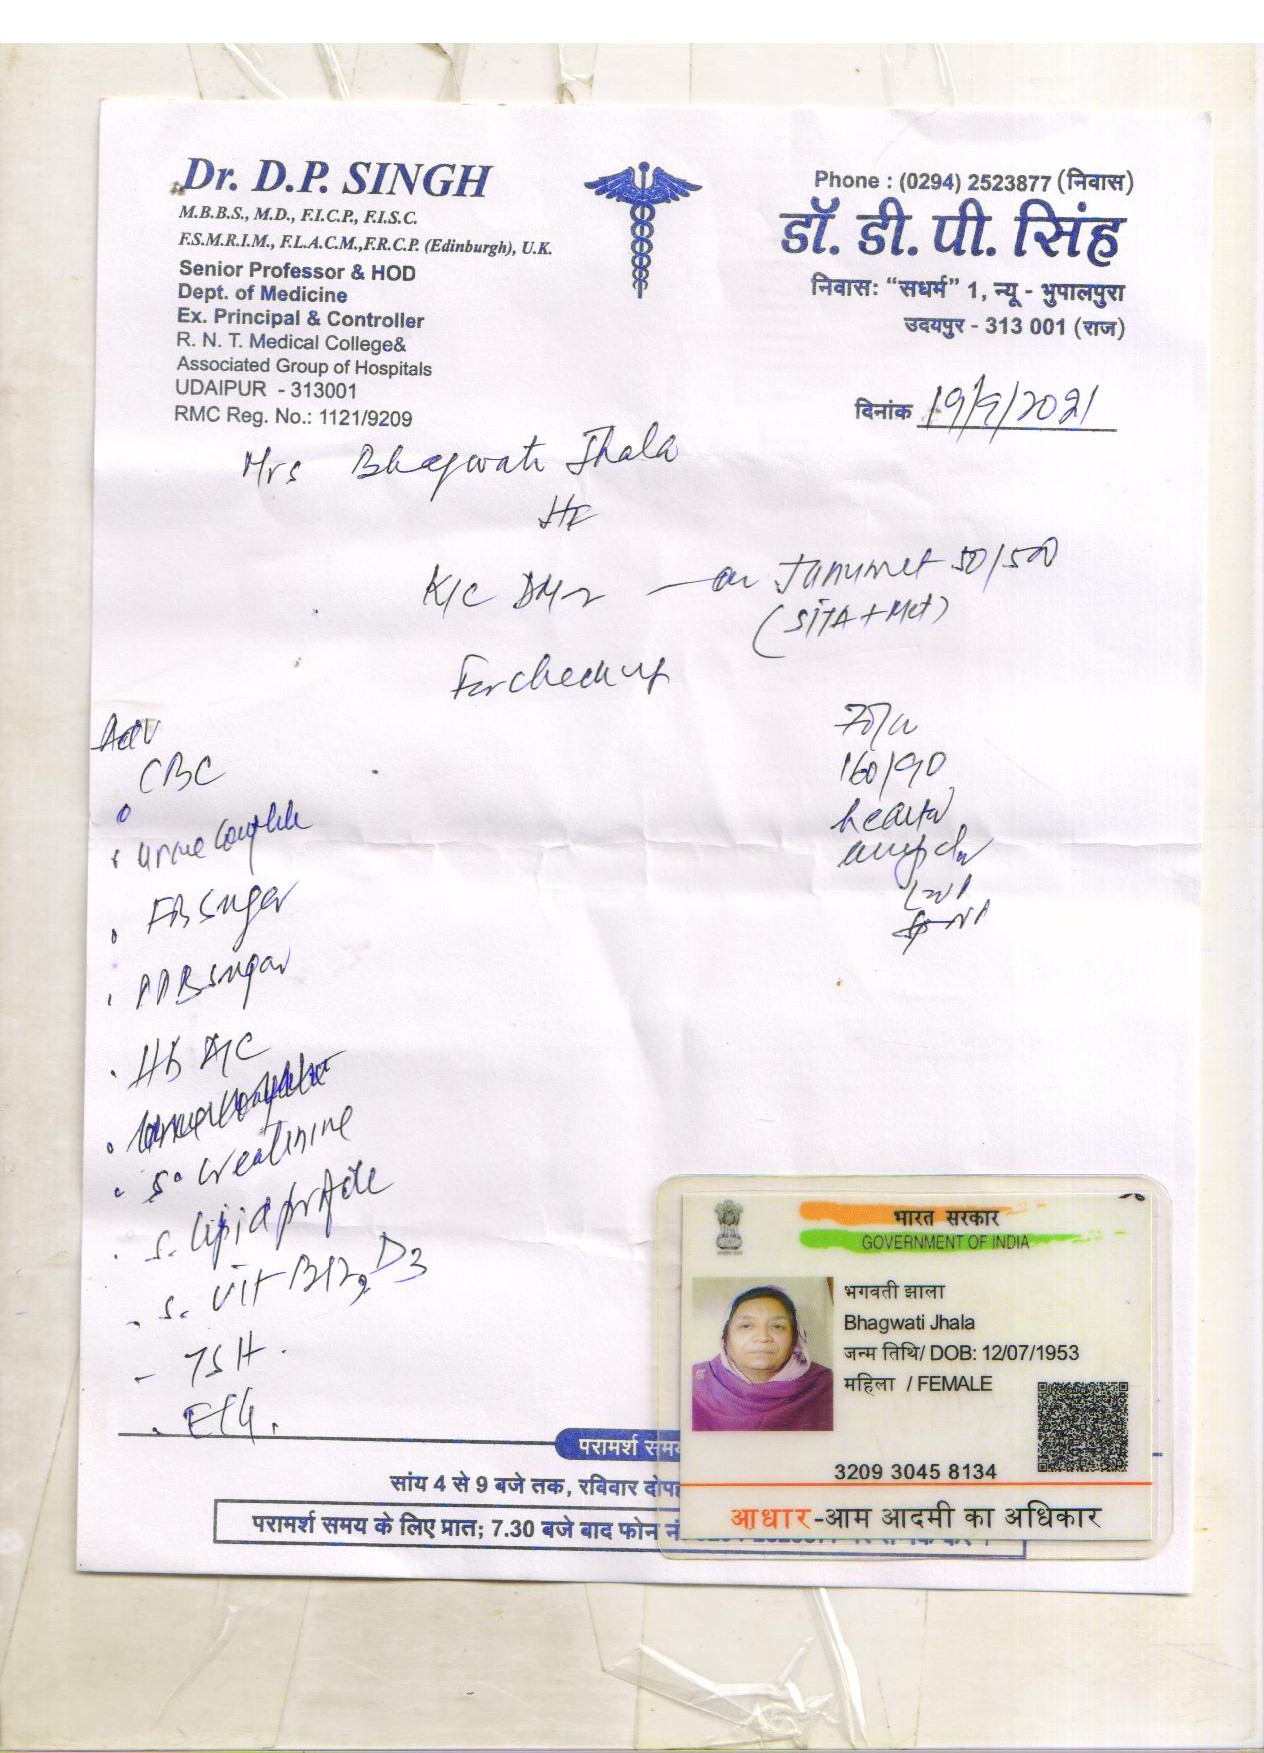 Dr. D.P. SINGH
M.B.B.S., M.D., F.I.C.P., F.I.S.C.
F.S.M.R.I.M., F.L.A.C.M.,F.R.C.P. (Edinburgh), U.K.
Senior Professor & HOD
Dept. of Medicine
Ex. Principal & Controller
R. N. T. Medical College&
Associated Group of Hospitals
UDAIPUR - 313001
RMC Reg. No.: 1121/9209
Phone : (0294) 2523877 (निवास)
डॉ. डी. पी. सिंह
निवासः “सधर्म” 1, न्यू - भुपालपुरा
उदयपुर - 313 001 (राज)
दिनांक 19/9/2021
Mrs Bhagwati Jhala
K/C DM2 — on Janumet 50/500
(SITA + Met)
For checkup
Adv
CBC
urine complete
FB sugar
PPB sugar
Hb A1C
S. creatinine
S. lipid profile
S. Vit B12, D3
TSH.
ECG.
160/90
परामर्श
सांय 4 से 9 बजे तक, रविवार
परामर्श समय के लिए प्रात; 7.30 बजे बाद फोन नं
भारत सरकार
GOVERNMENT OF INDIA
भगवती झाला
Bhagwati Jhala
जन्म तिथि/ DOB: 12/07/1953
महिला / FEMALE
3209 3045 8134
आधार-आम आदमी का अधिकार